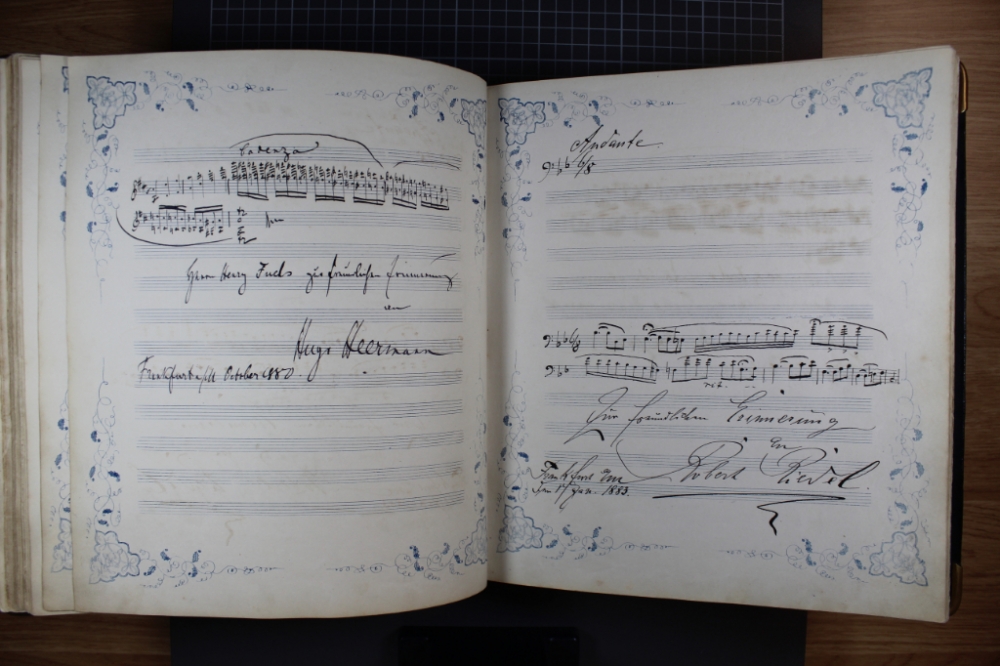 Cadenza
Herrn Henry Fuchs zur freundlichen Erinnerung
von
Hugo Heermann
Frankfurt a/M October 1880.
Andante
6/8
6/8
rit.
Zur freundlichen Erinnerung
an
Robert Riedel
Frankfurt a/M
den 17 Jan. 1883.